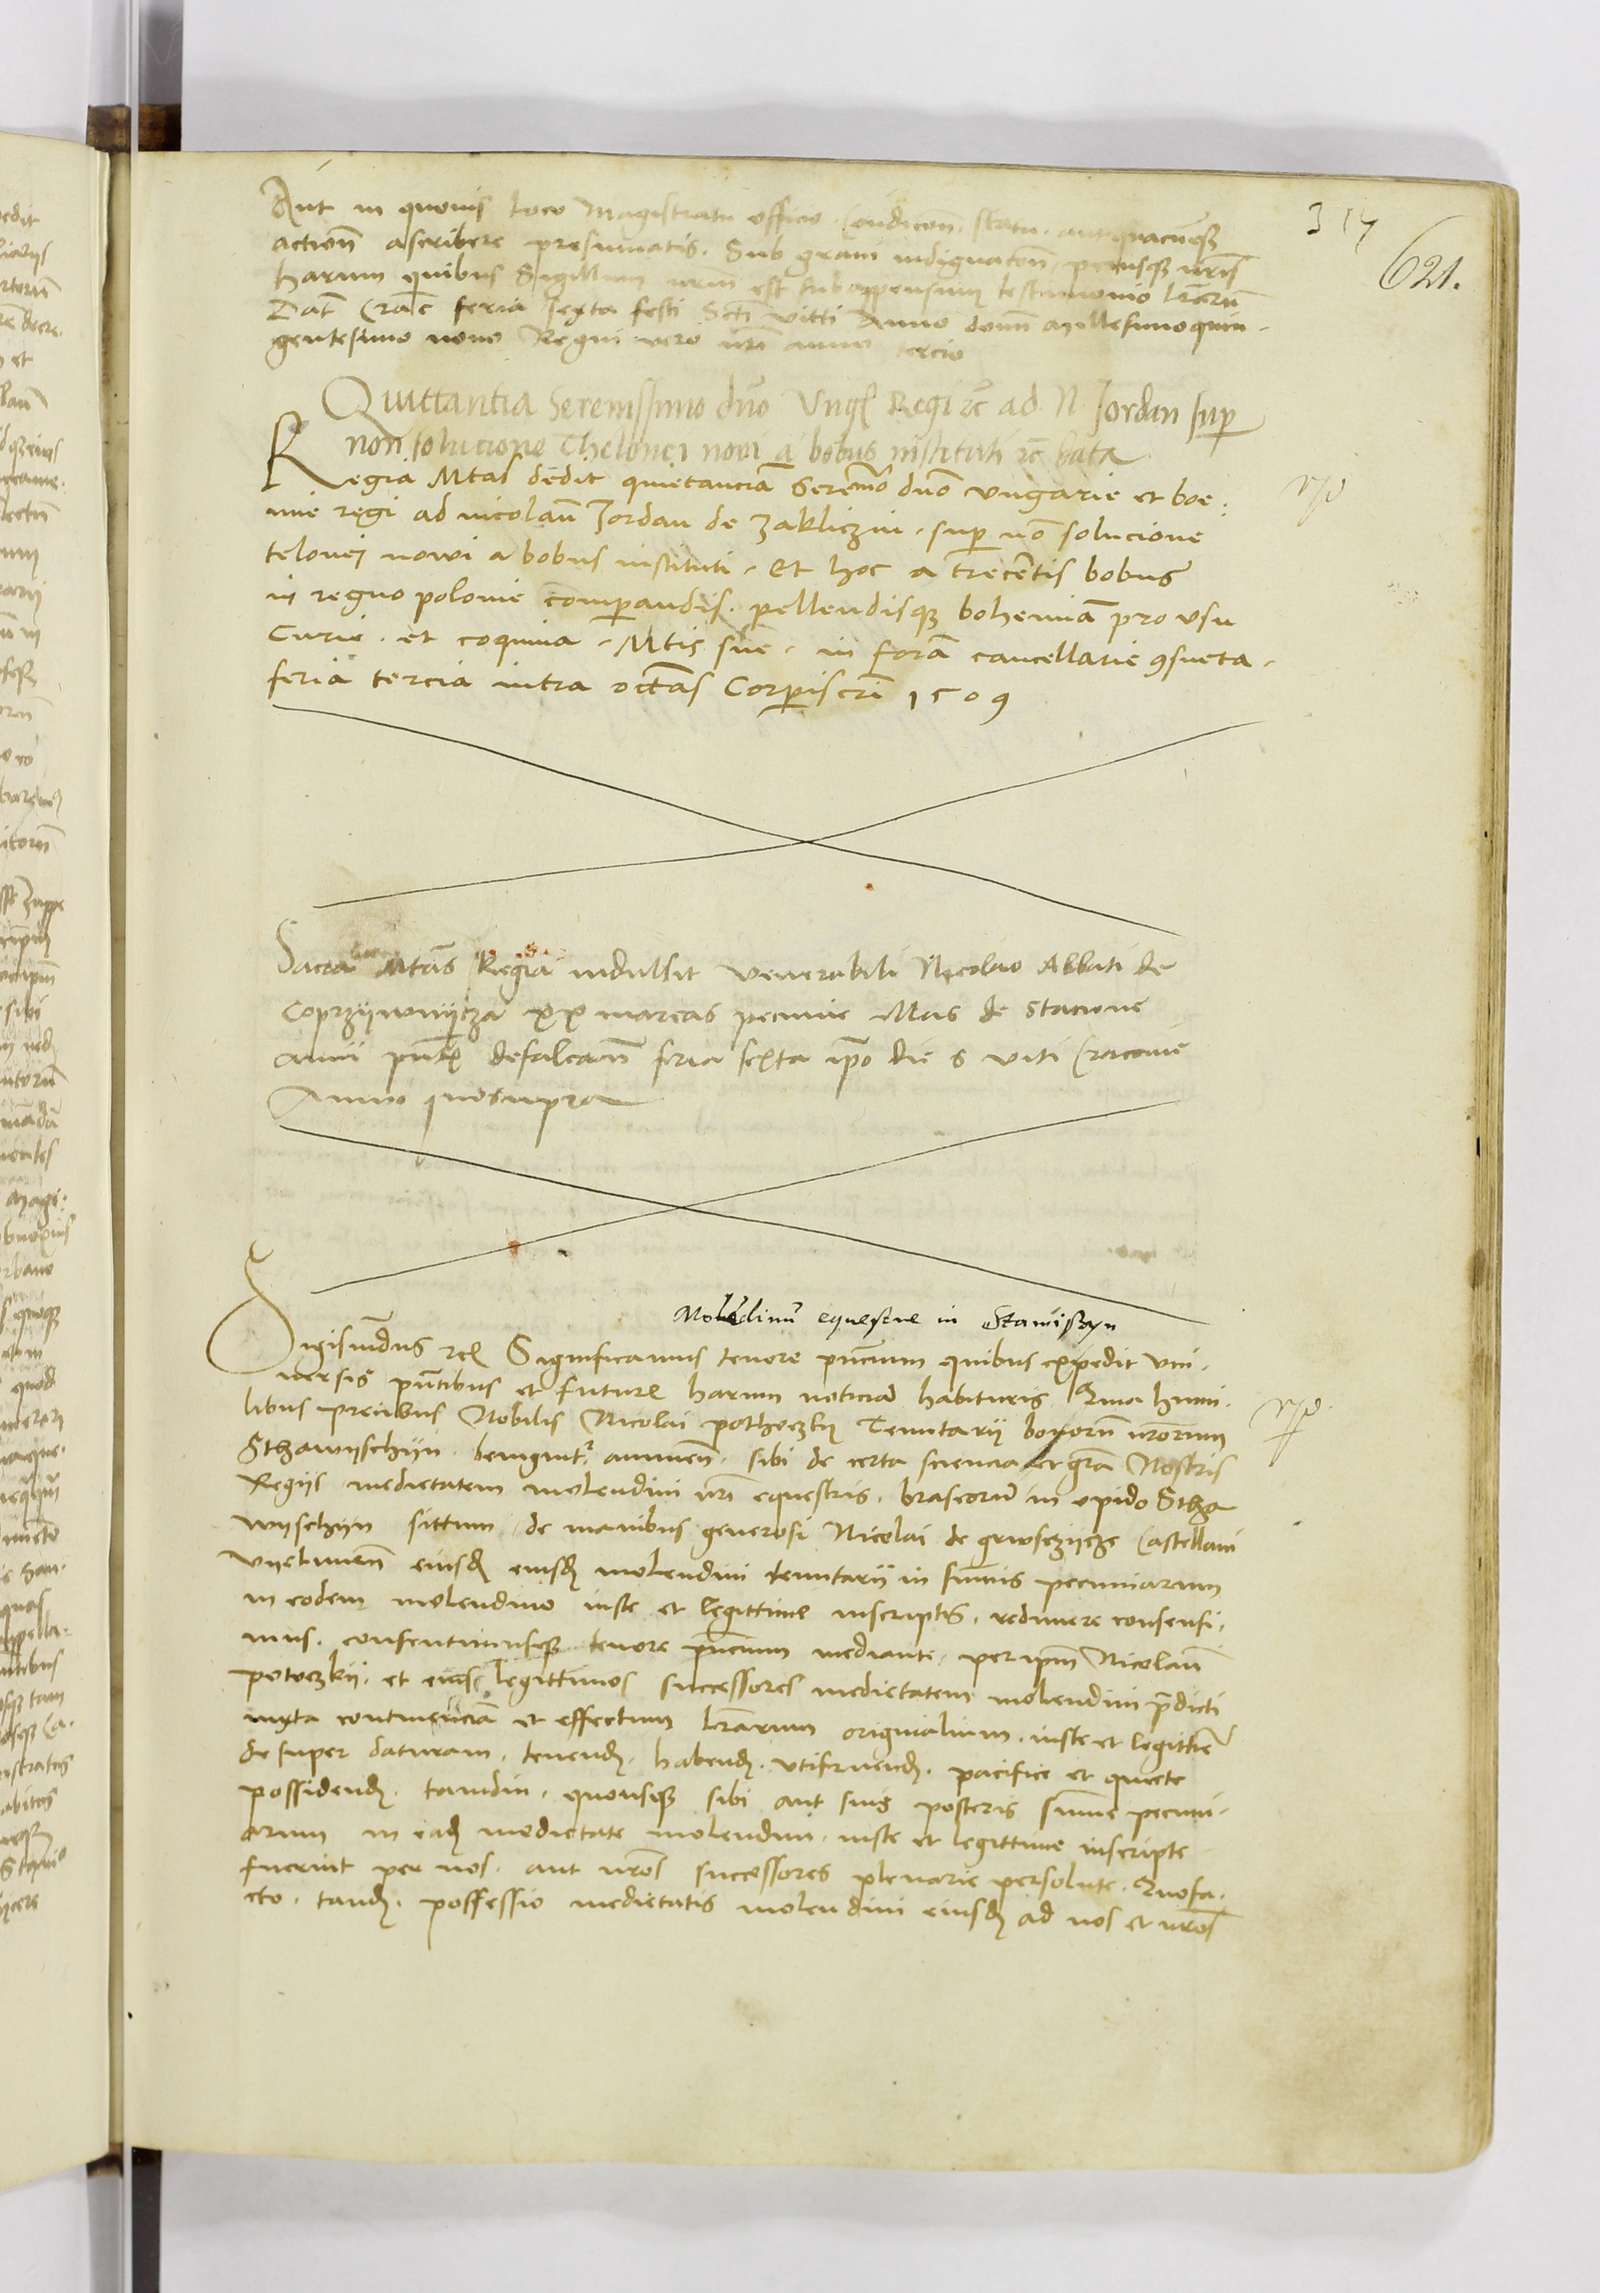 314
621.
Aut in quovis loco Magistratu officio Condicoñ statu
actioñ ascribere presumatis. Sub gravi indignatoñ penisqz nr̃is
harum quibus Sigillum nr̃m est subappensum testimonio lr̃arũ
Dat̃ Crac̃ feria sexta festi Scti Vitti Anno domñ millesimoquin-
gentesimo nono Regni vero nr̃i anno tercio
Quittantia Serenissimo dño Ungł Regi zc̃ ad N. Jordan sup
non solucione Thelonei novi a bobus instituti zc̃ data
Regia Mtas dedit quietanciã Serem̃o dño Ungarie et boe.
mie regi ad nicolaũ Jordan de Zakliczin. sup nõ solucione
telonei nowi a bobus instituti. Et hoc a trecẽtis bobus
in regno polonie comparandis. pellendisqz bohemiã pro usu
Curie. et coquina. Mtis sue. in forã cancellarie ꝯsueta.
feria tercia intra octãs Corpis cri 1509
Sacra Mtãs Regia indulsit venerabili Nicolao Abbati de
Coprziiwnijcza xx marcas pecunie Mas de stacione
anni pñtis defalcañ feria sexta ipo die s viti Cracovie
Anno quo supra
Molẽdinũ equestre in Stawiszyn
Sigismũdus rex Significamus tenore pñcium quibus expedit uni-
versis pñtibus et futuris harum noticiã habituris Quia humi-
libus precibus Nobilis Nicolai pothoczky Tenutarij bonorũ nr̃orum
Sthawijschijn. benignit̃ annueñ. sibi de certa sciencia et gr̃a Nostris
Regijs medietatem molendini nr̃i equestris. braseorũ in opido Stha
wijschijn sittum de manibus generosi Nicolai de grusczijcze Castellani
Vijeluneñ eiusdz eiusdz molendini tenutarij in summis pecuniarum
in eodem molendino iuste et legittime inscriptis. redimere consensi-
mus. consentimusqz tenore pñcium mediante. per ipm̃ Nicolaũ
potoczkij. et eius legittimos successores medietatem molendini p̃dicti
iuxta continenciã et effectum lr̃arum originalium. iuste et legittiẽ
desuper daturam. tenendz. habendz. utifruendz. pacifice et quiete
possidendz. tamdiu. quousqz sibi aut suis posteris summe pecuni-
arum in eadz medietate molendini. iuste et legittime inscripte
fuerint per nos. aut nr̃os successores plenarie persolute. Quofa-
cto. tandz. possessio medietatis molendini eiusdz ad nos et nr̃os